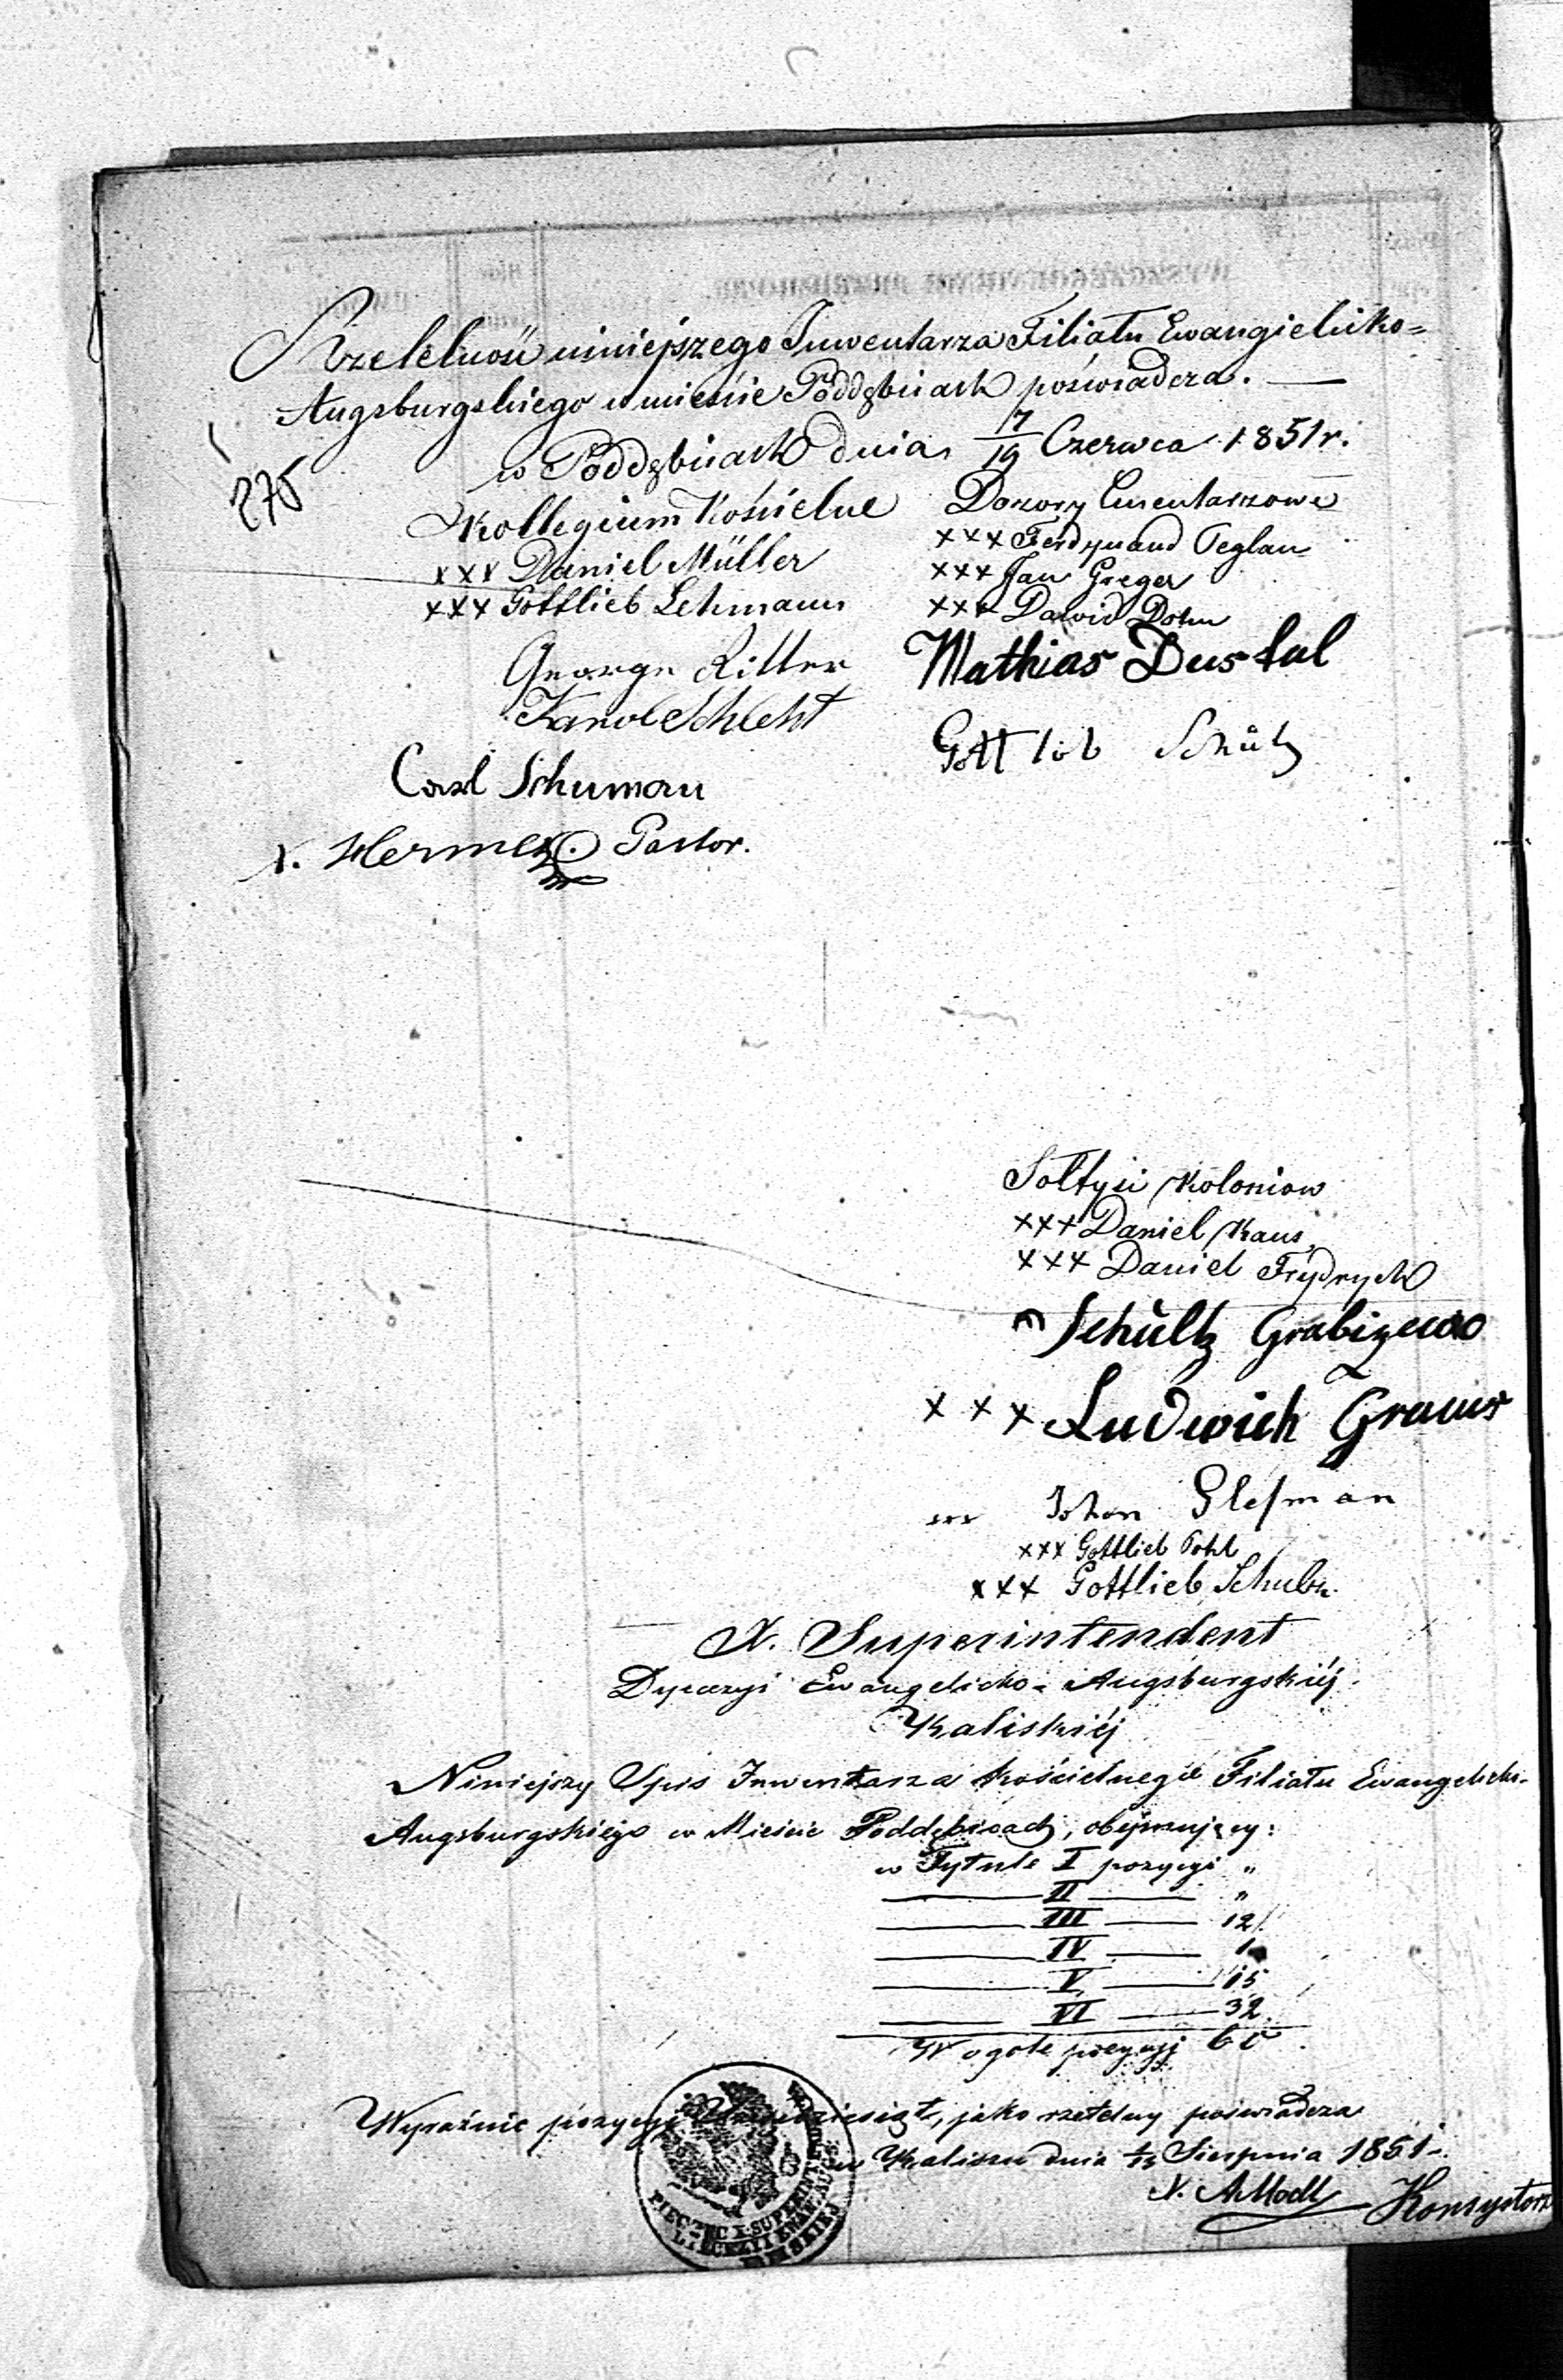 Rzetelność niniejszego Inwentarza Filiału Ewangielicko=
Augsburgskiego w mieście Poddębicach poświadcza. —
w Poddębicach dnia 7/19 Czerwca 1851 r.
275
Kollegium Kościelne
xxx Daniel Müller
xxx Gottlieb Lehmann
George Ritter
Karol Schlecht
Carl Schuman
X. Hermes. Pastor.
Dozory Cmentarzowe
xxx Ferdynand Peglau
xxx Jan Greger
xxx Dawid Dohn
Mathias Dustal
Gottlib Schütz
Sołtysi Koloniow
xxx Daniel Kaus
xxx Daniel Frydrych
Schültz
xxx Ludwich
xxx Johan Glesman
xxx Gottlieb Pohl
xxx Gottlieb Schulz
X. Superintendent
Dyecezyi Ewangelicko-Augsburgskiéj
Kaliskiéj
Niniejszy Spis Inwentarza kościelnego Filiału Ewangelicko-
Augsburgskiego w Mieście Poddębicach, obejmujący:
w Tytule I pozycyi "
— II — "
— III — 12
— IV — 1
— V — 15
— VI — 32
W ogóle pozycyi 60
Wyraźnie pozycyj sześćdziesiąt, jako rzetelny poświadcza
w Kaliszu dnia Sierpnia 1851
X. AModl
PIECZĘĆ X. SUPERINTENDENTA